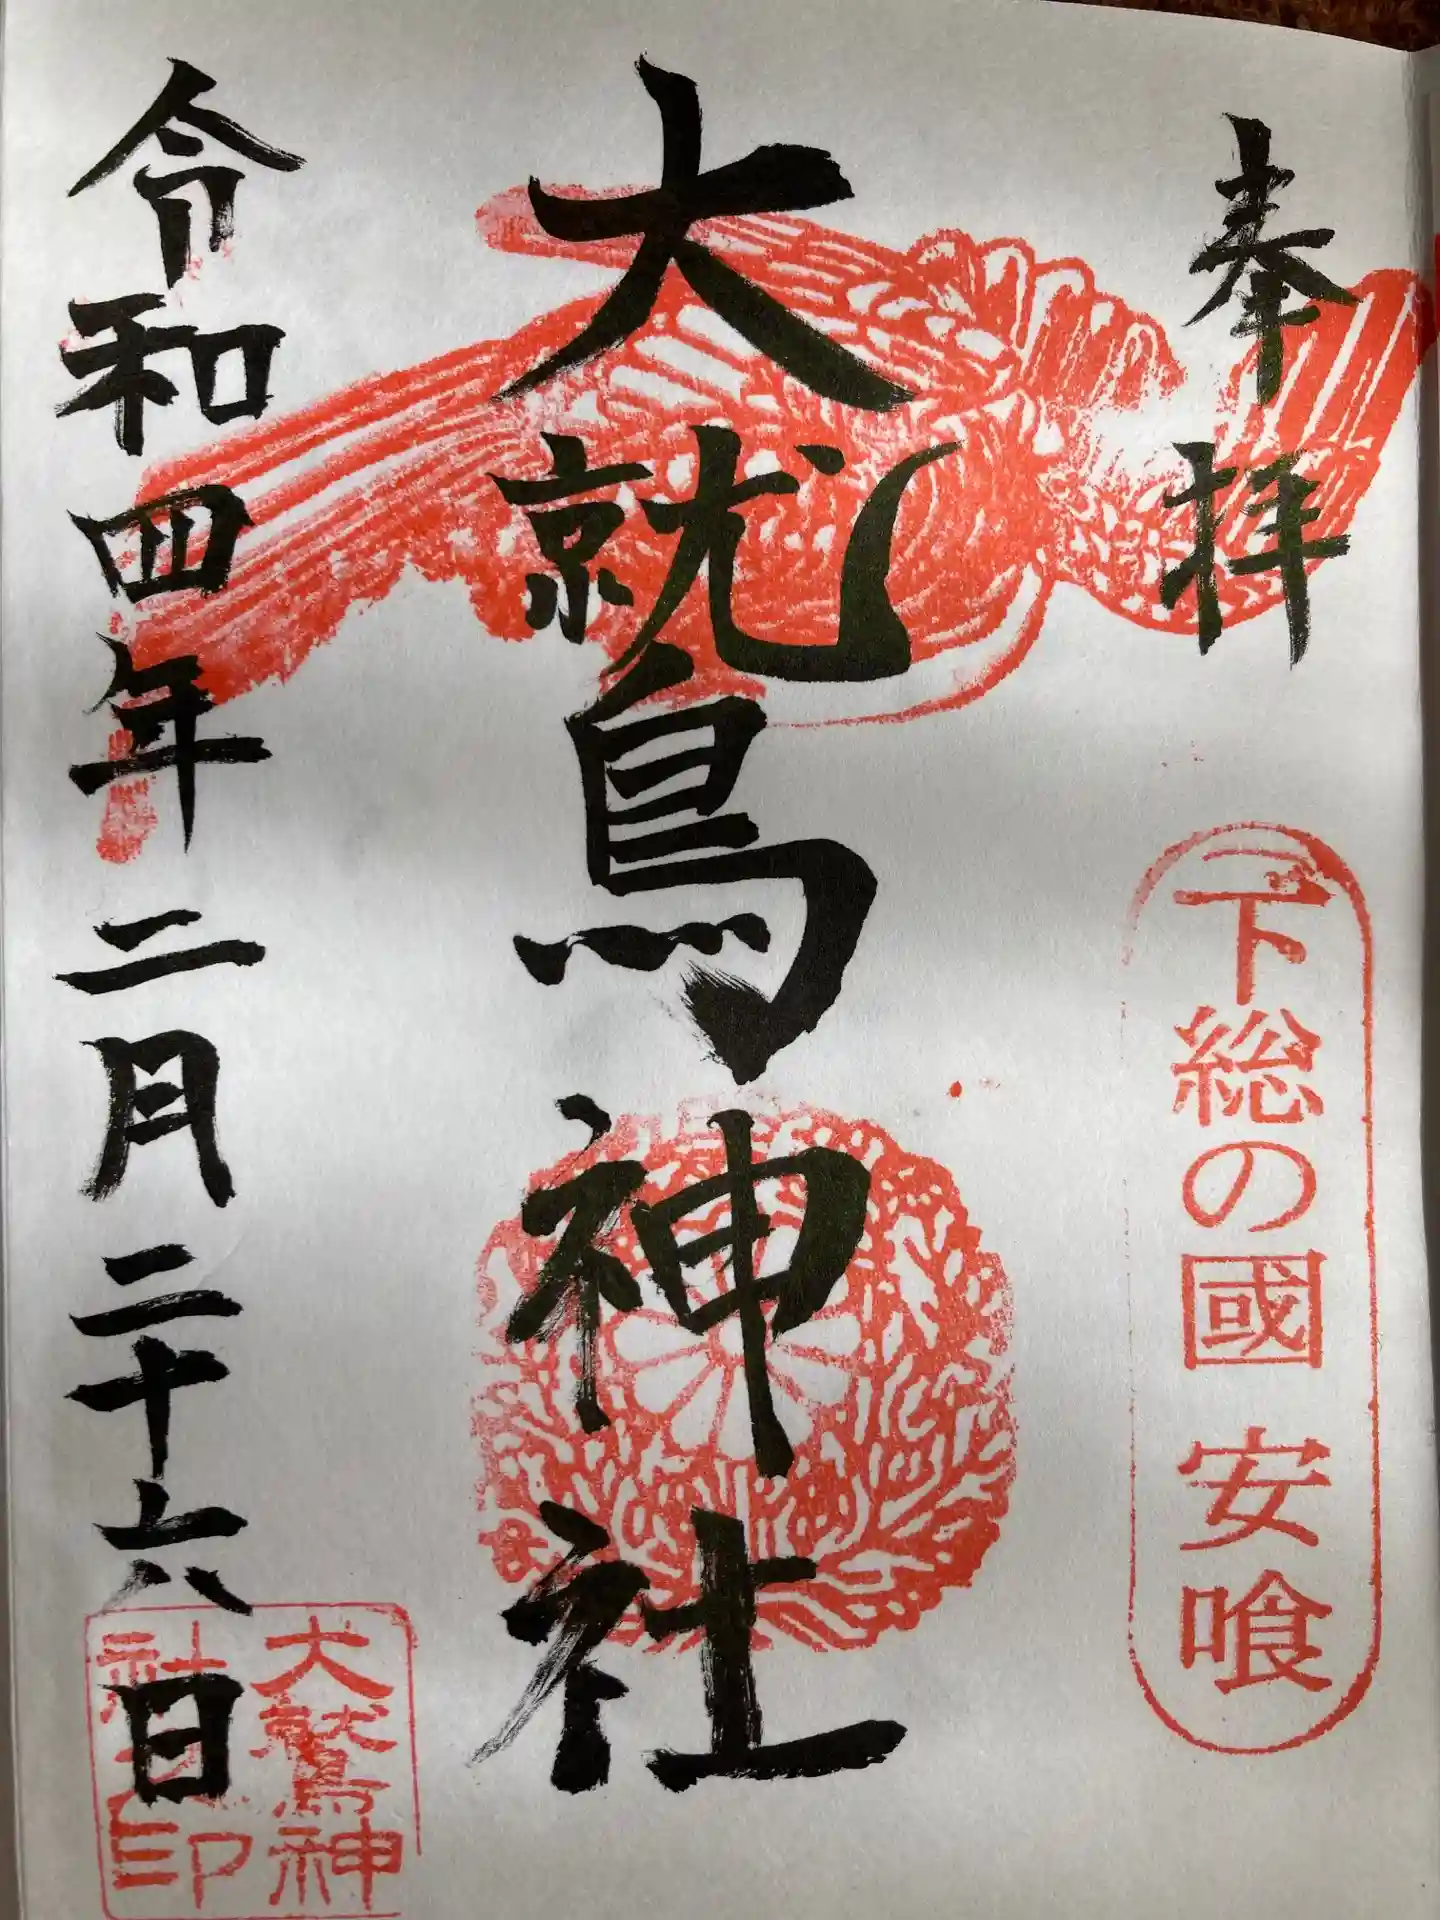 奉拝
下総の國 安喰
大鷲神社
令和四年二月二十六日
大鷲神
社之印